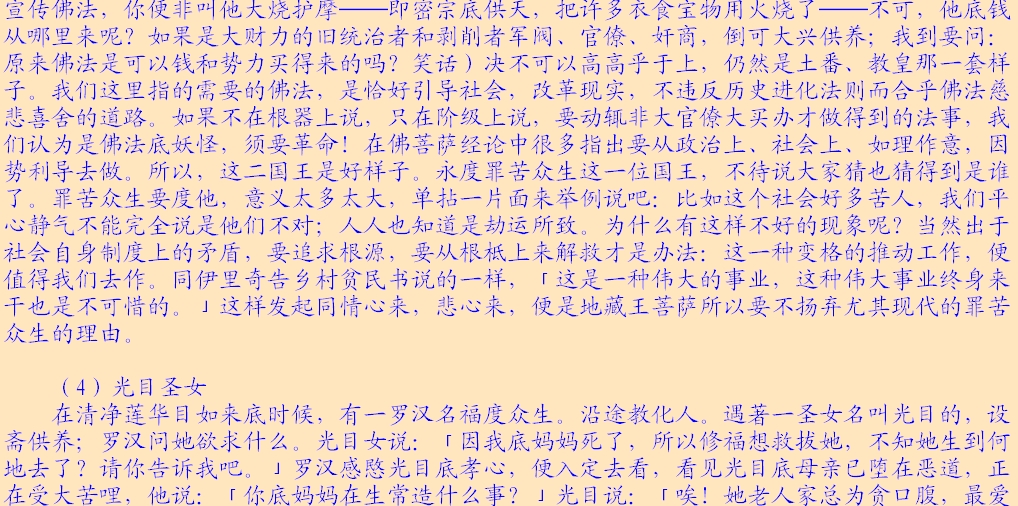 宣传佛法，你便非叫他大烧护摩——即密宗底供天，把许多衣食宝物用火烧了——不可，他底钱
从哪里来呢？如果是大财力的旧统治者和剥削者军阀、官僚、奸商，倒可大兴供养；我到要问：
原来佛法是可以钱和势力买得来的吗？笑话）决不可以高高乎于上，仍然是土番、教皇那一套样
子。我们这里指的需要的佛法，是恰好引导社会，改革现实，不违反历史进化法则而合乎佛法慈
悲喜舍的道路。如果不在根器上说，只在阶级上说，要动辄非大官僚大买办才做得到的法事，我
们认为是佛法底妖怪，须要革命！在佛菩萨经论中很多指出要从政治上、社会上、如理作意，因
势利导去做。所以，这二国王是好样子。永度罪苦众生这一位国王，不待说大家猜也猜得到是谁
了。罪苦众生要度他，意义太多太大，单拈一片面来举例说吧：比如这个社会好多苦人，我们平
心静气不能完全说是他们不对；人人也知道是劫运所致。为什么有这样不好的现象呢？当然出于
社会自身制度上的矛盾，要追求根源，要从根柢上来解救才是办法：这一种变格的推动工作，便
值得我们去作。同伊里奇告乡村贫民书说的一样，「这是一种伟大的事业，这种伟大事业终身来
干也是不可惜的。」这样发起同情心来，悲心来，便是地藏王菩萨所以要不扬弃尤其现代的罪苦
众生的理由。
（4）光目圣女
在清净莲华目如来底时候，有一罗汉名福度众生。沿途教化人。遇著一圣女名叫光目的，设
斋供养；罗汉问她欲求什么。光目女说：「因我底妈妈死了，所以修福想救拔她，不知她生到何
地去了？请你告诉我吧。」罗汉感愍光目底孝心，便入定去看，看见光目底母亲已堕在恶道，正
在受大苦哩，他说：「你底妈妈在生常造什么事？」光目说：「唉！她老人家总为贪口腹，最爱